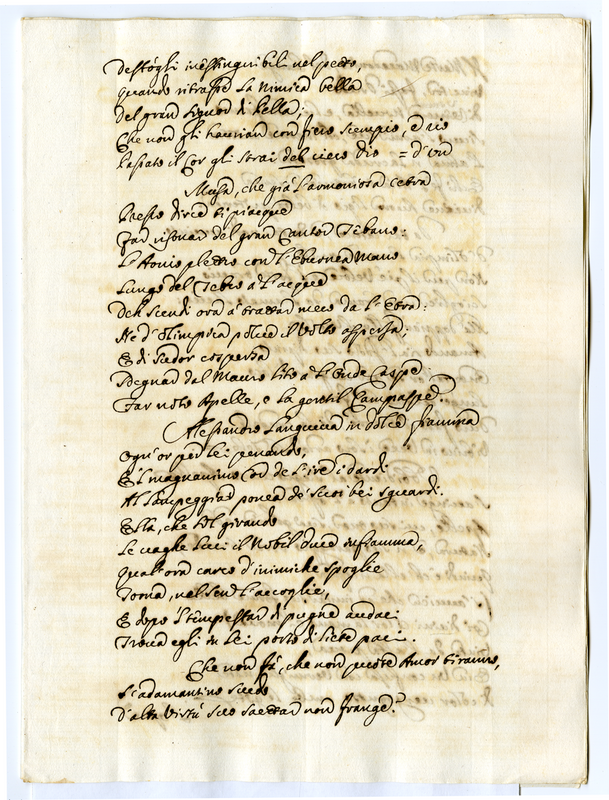 Destógli inestinguibili nel petto,
Quando ritrasse La Nimica bella
Del gran Signor di Pella;
Che non gli havrian con fiero scempio, e rio
lasciato il Cor gli strai del cieco Dio = d'un
Musa, che già l'armoniosa Cetra
Presso Dirce ti piacque
Far risonar del gran Cantor Tebano:
L'Aonio plettro con l'Eburnea Mano
Lungo del Tebro à l'acque
Deh scendi ora à trattar meco da l'Etra:
Nè d'Olimpica polve il Volto aspersa,
E di sudor cospersa
Degnar dal Mauro lito à l'Onde Caspe
Far noto Apelle, e la gentil Campaspe.
Alessandro Languiva in dolce fiamma
Ogn'or per lei penando,
E'l magnanimo Cor de l'ire i dardi
Al lampeggiar ponea de' suoi bei sguardi.
Ella, che sol girando
Le vaghe luci il Nobil Duce infiamma,
Qual'ora carco d'inimiche spoglie
Torna, nel sen l'accoglie,
E dopo il tempestar di pugne audaci
Trova egli in lei porto di liete paci.
Che non fà, che non puote Amor tiranno,
S'adamantino scudo
D'alta Virtù suo saettar non frange?